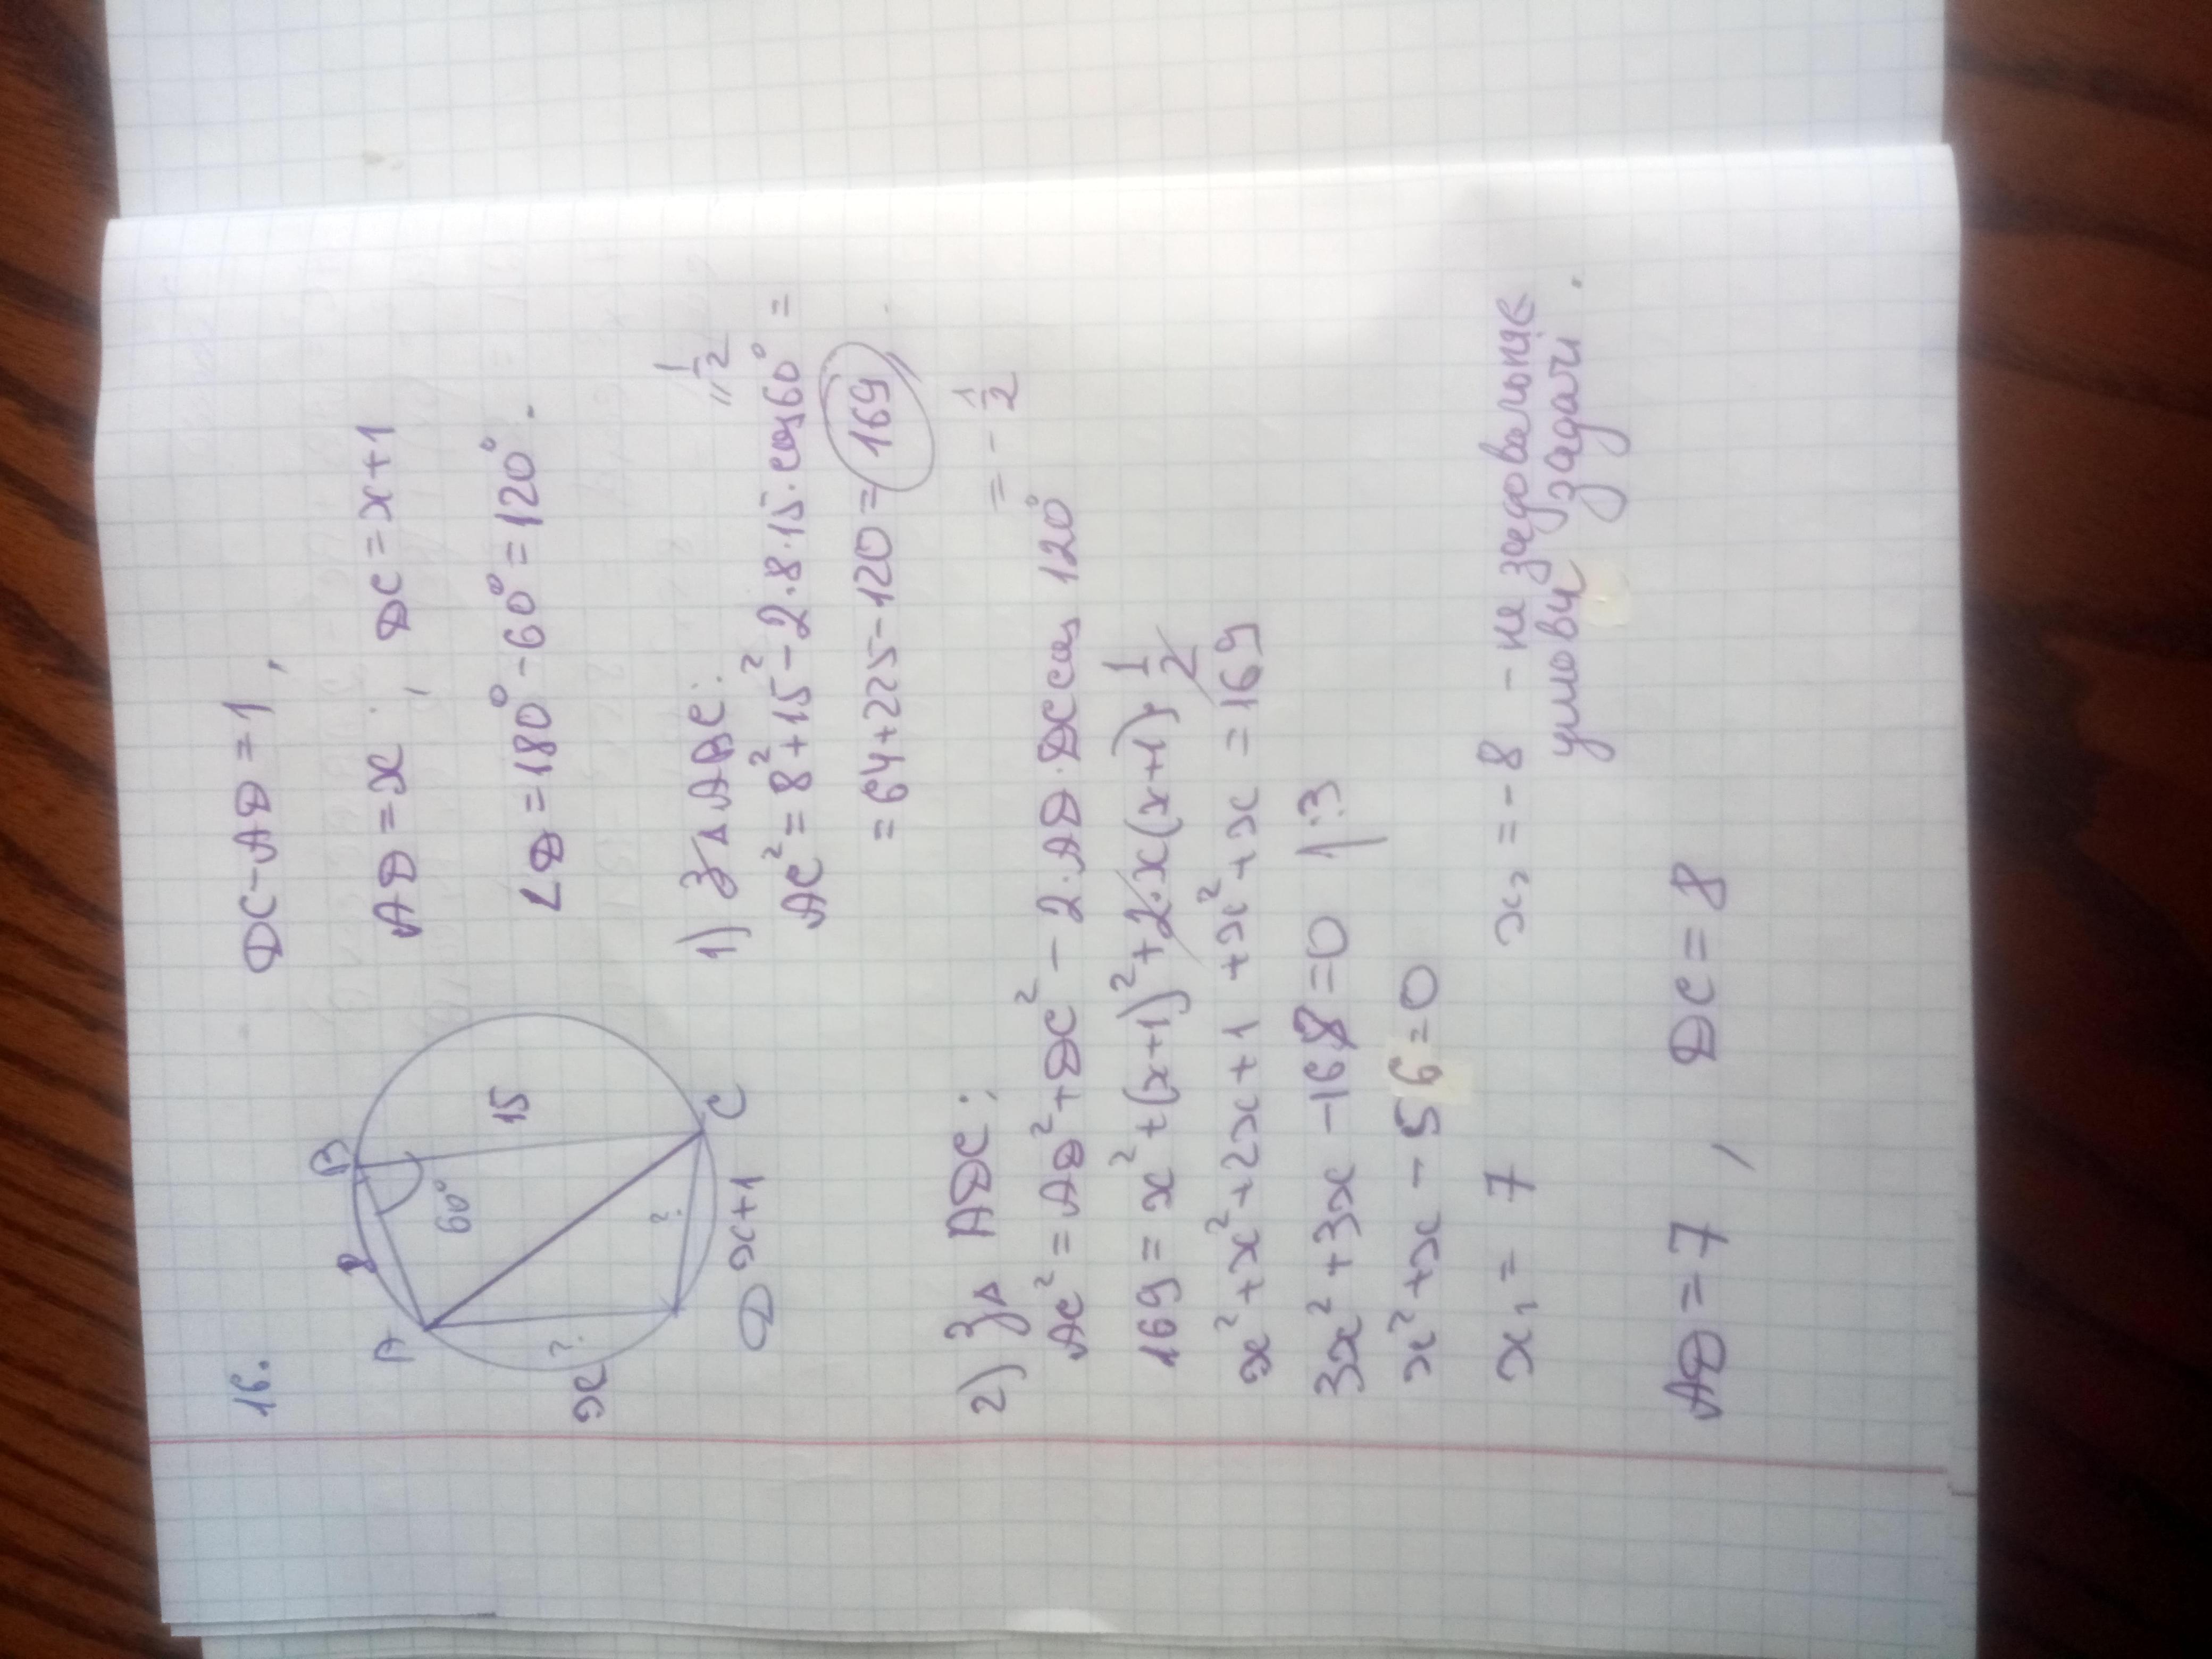 16.
DC-AD=1,
AD=x, DC=x+1
∠D=180°-60°=120°.
A
8
B
60°
15
C
?
x
?
D
x+1
1) З △ ABC:
" 1/2
AC²=8²+15²-2·8·15·cos60°=
=64+225-120=169
2) З △ ADC:
= - 1/2
AC²=AD²+DC²-2·AD·DC cos 120°
169=x²+(x+1)²+2·x(x+1)·1/2
x²+x²+2x+1+x²+x=169
3x²+3x-168=0 |:3
x²+x-56=0
x₁=7 x₂=-8 - не задовольняє
умови задачі.
AD=7, DC=8